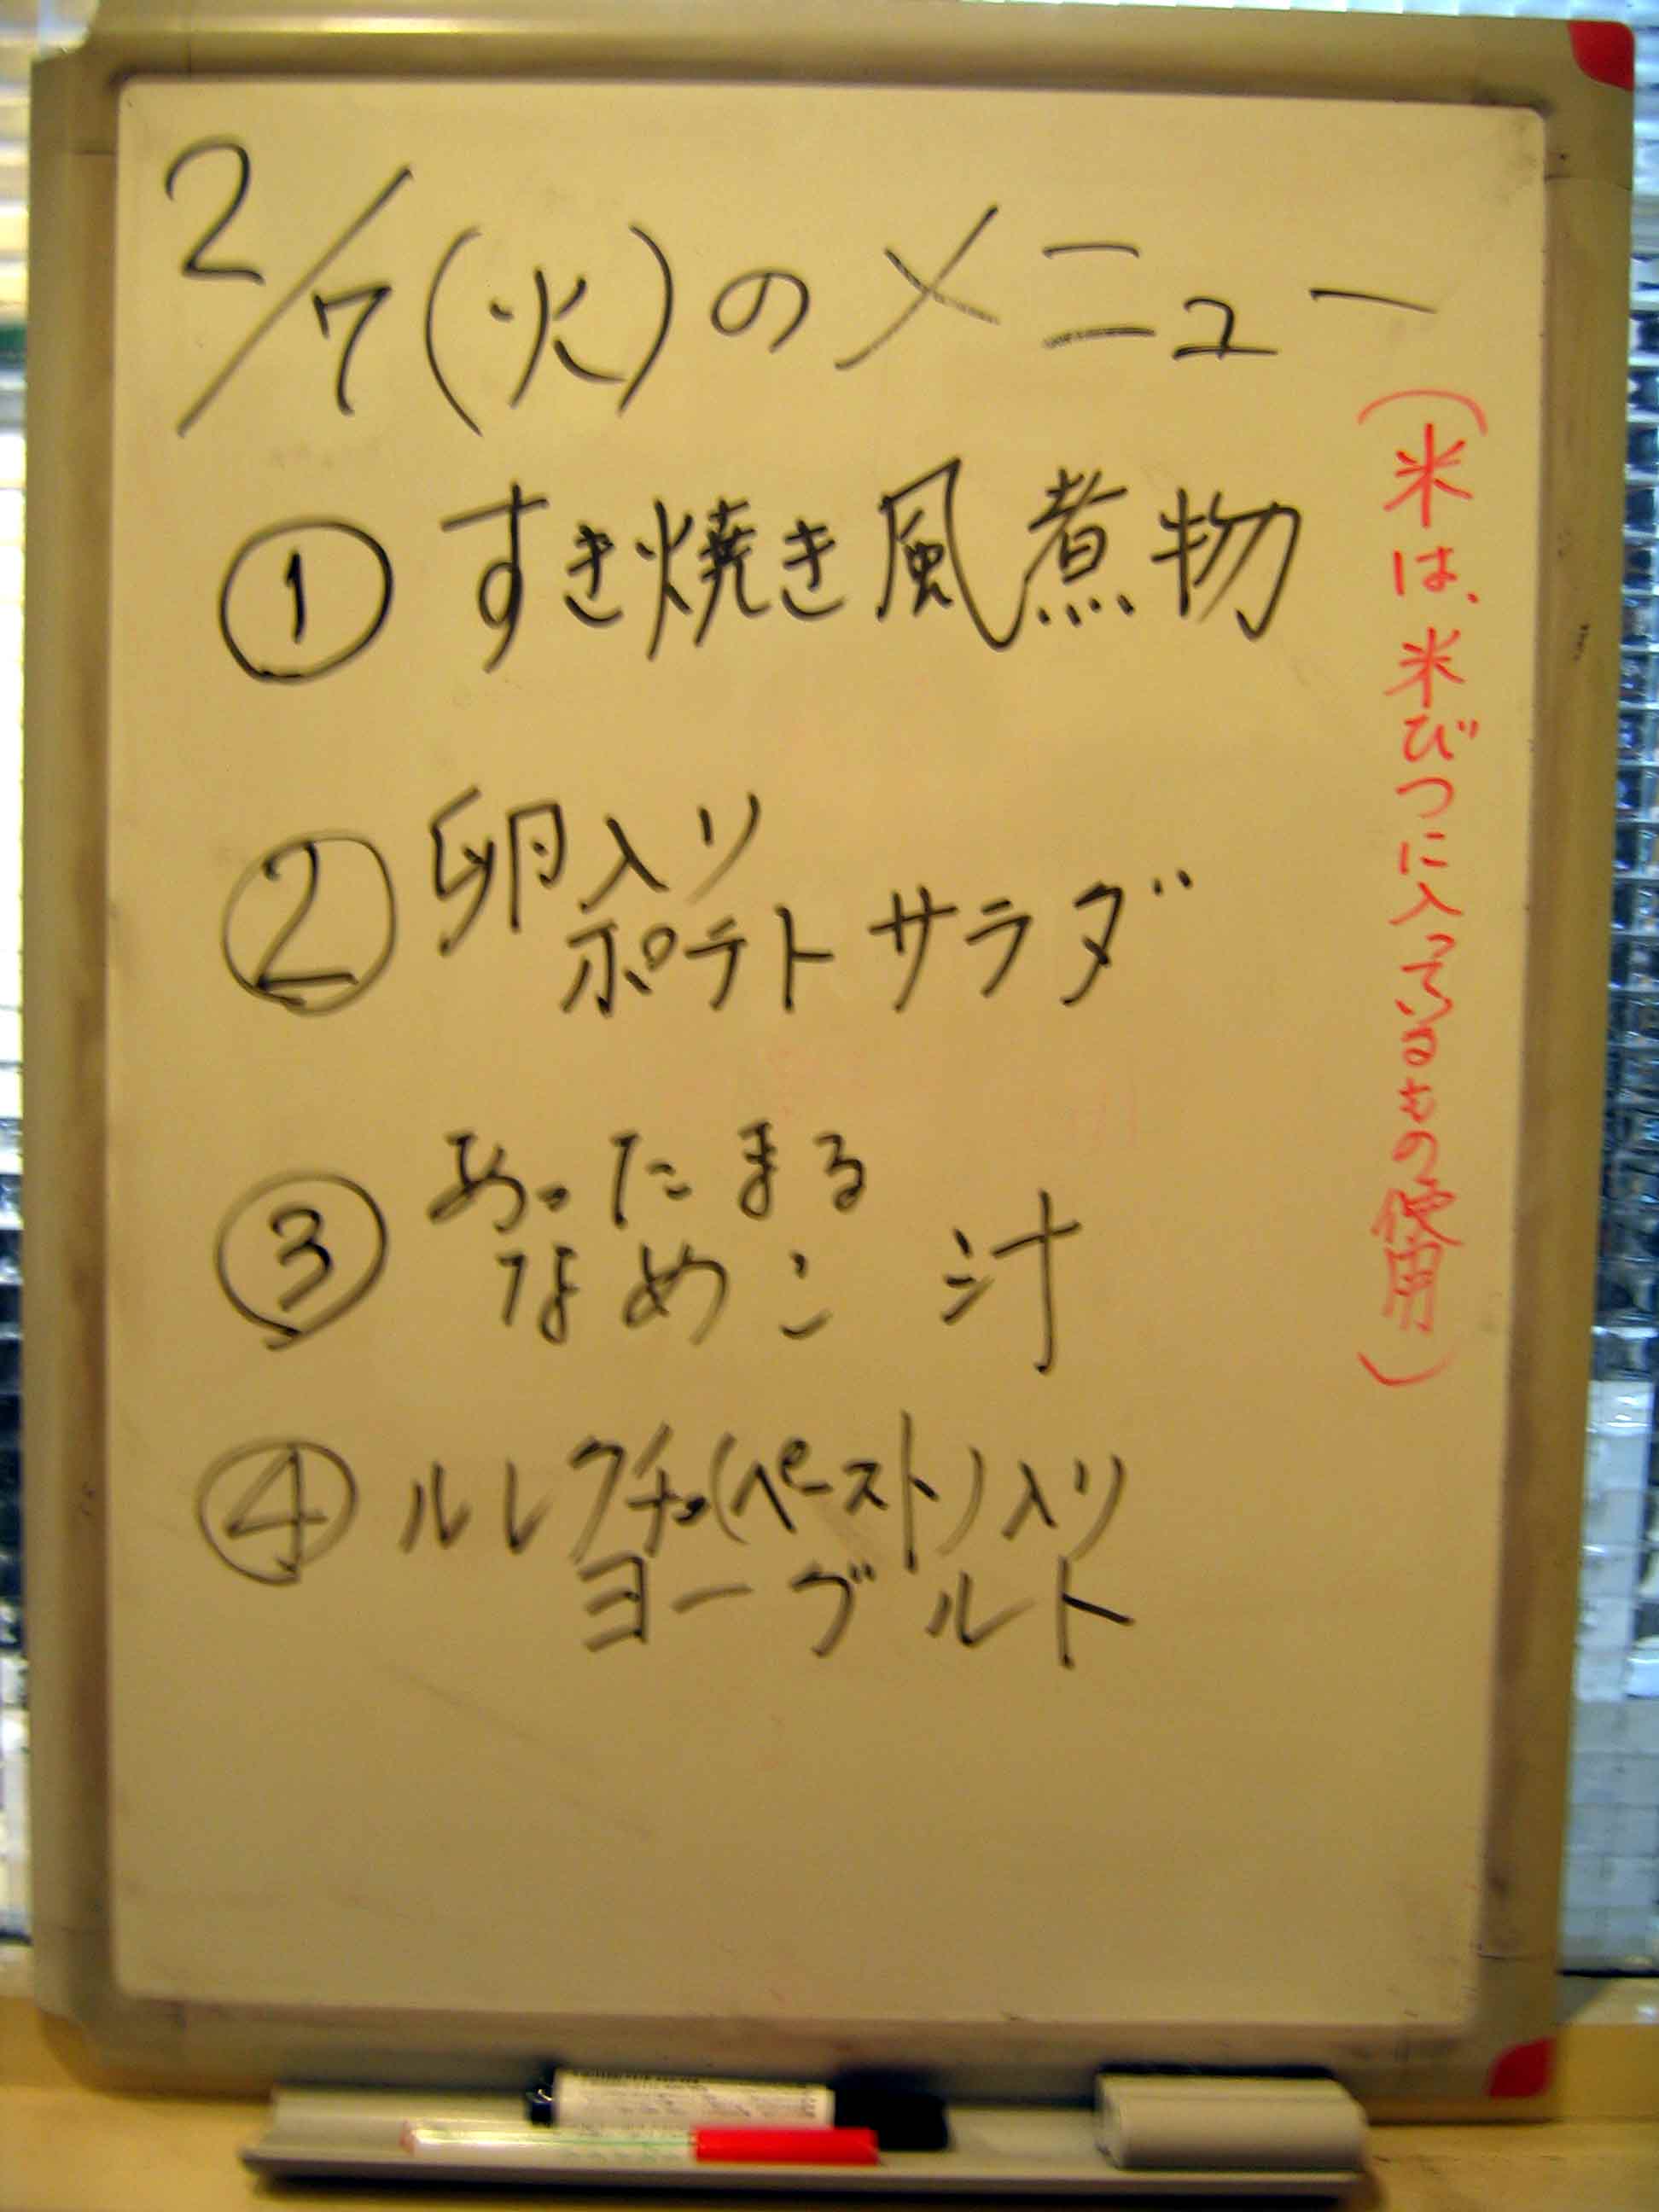 2/7(火)のメニュー
① すき焼き風煮物
② 卵入り
ポテトサラダ
③ あったまる
なめこ 汁
④ ルレクチェ(ペースト)入り
ヨーグルト
(米は、米びつに入っているもの使用)